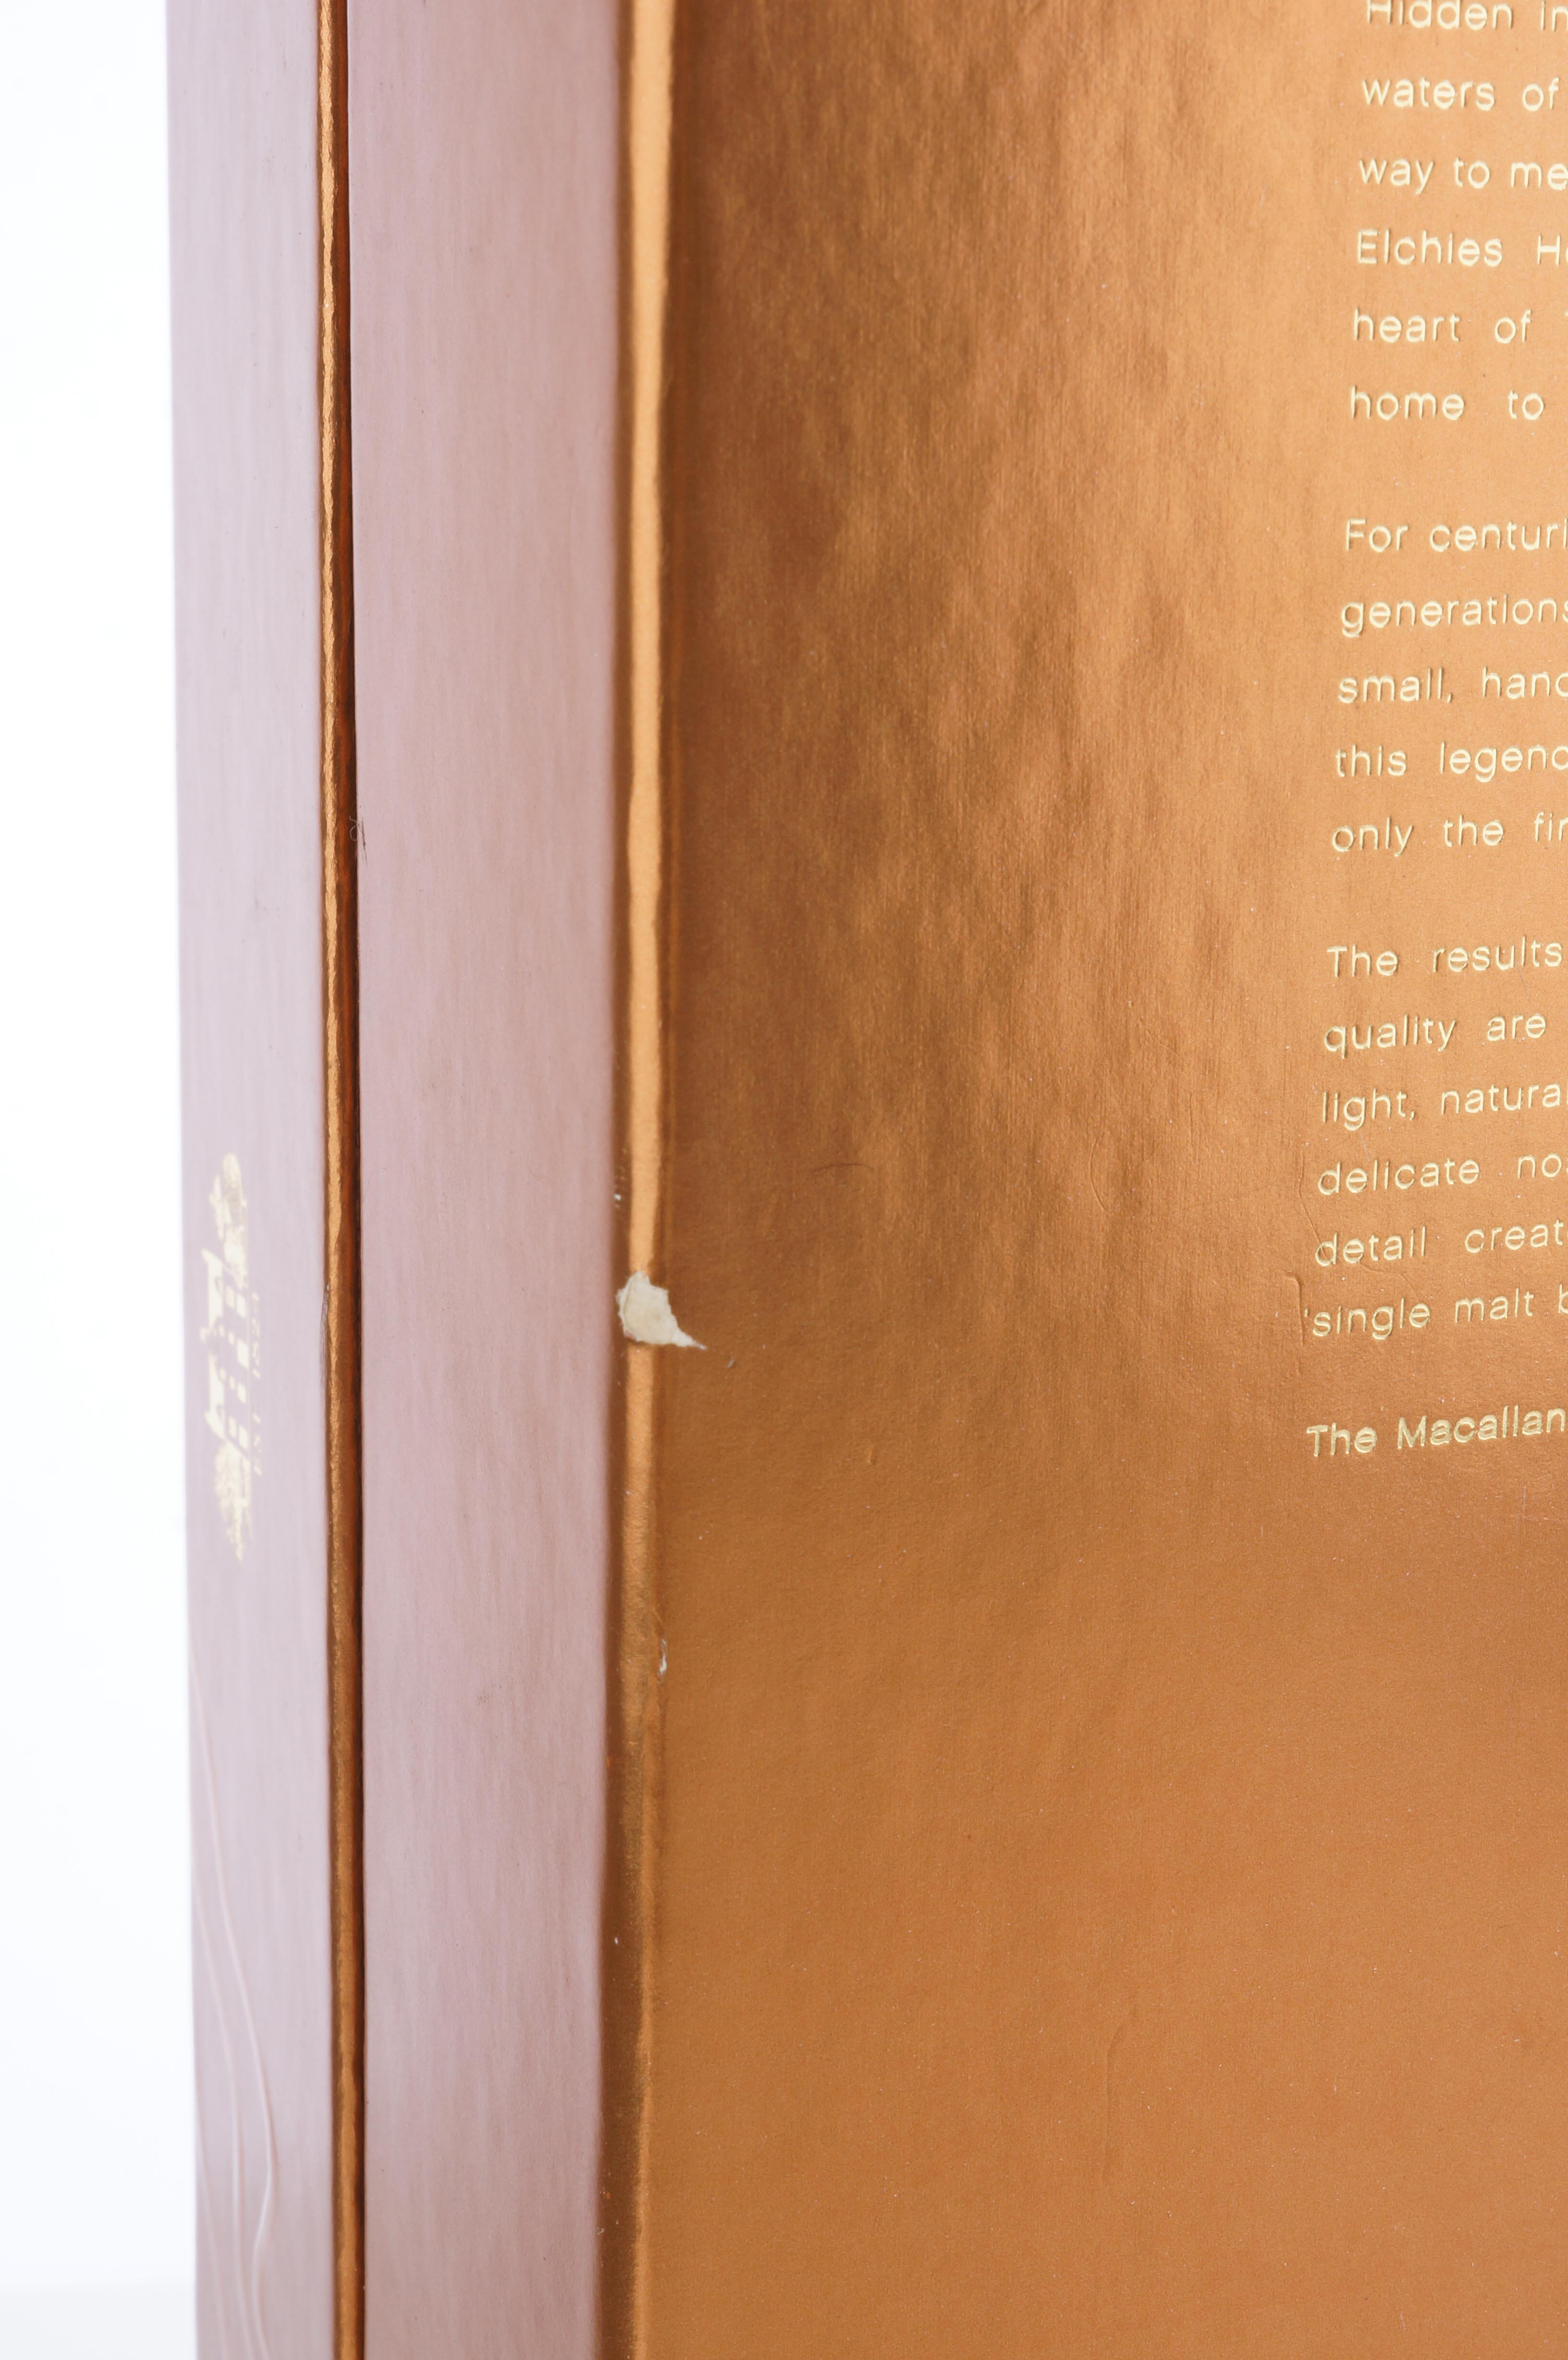 Hidden in
waters of
way to me
Elchies H
heart of
home to
For centuri
generations
small, hand
this legend
only the fin
The results
quality are
light, natura
delicate no
detail creat
single malt b
The Macallan
EST 1824